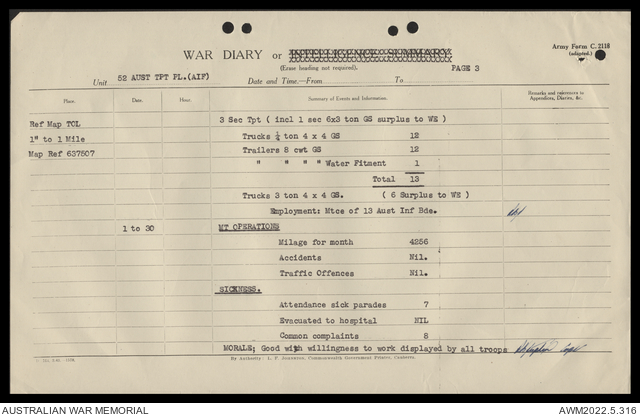 Army Form C. 2118
(adapted.)
WAR DIARY or INTELLIGENCE SUMMARY
(Erase heading not required).
PAGE 3
Unit 52 AUST TPT PL.(AIF) Date and Time.—From To
Place. Date. Hour. Summary of Events and Information. Remarks and references to Appendices, Diaries, &c.
3 Sec Tpt ( incl 1 sec 6x3 ton GS surplus to WE )
Ref Map TCL
Trucks ¼ ton 4 x 4 GS 12
1" to 1 Mile
Trailers 8 cwt GS 12
Map Ref 637507
" " " " Water Fitment 1
Total 13
Trucks 3 ton 4 x 4 GS. ( 6 Surplus to WE )
Employment: Mtce of 13 Aust Inf Bde.
1 to 30 MT OPERATIONS
Milage for month 4256
Accidents Nil.
Traffic Offences Nil.
SICKNESS.
Attendance sick parades 7
Evacuated to hospital NIL
Common complaints 8
MORALE; Good with willingness to work displayed by all troops
By Authority: L. F. Johnston, Commonwealth Government Printer, Canberra.
AUSTRALIAN WAR MEMORIAL AWM2022.5.316